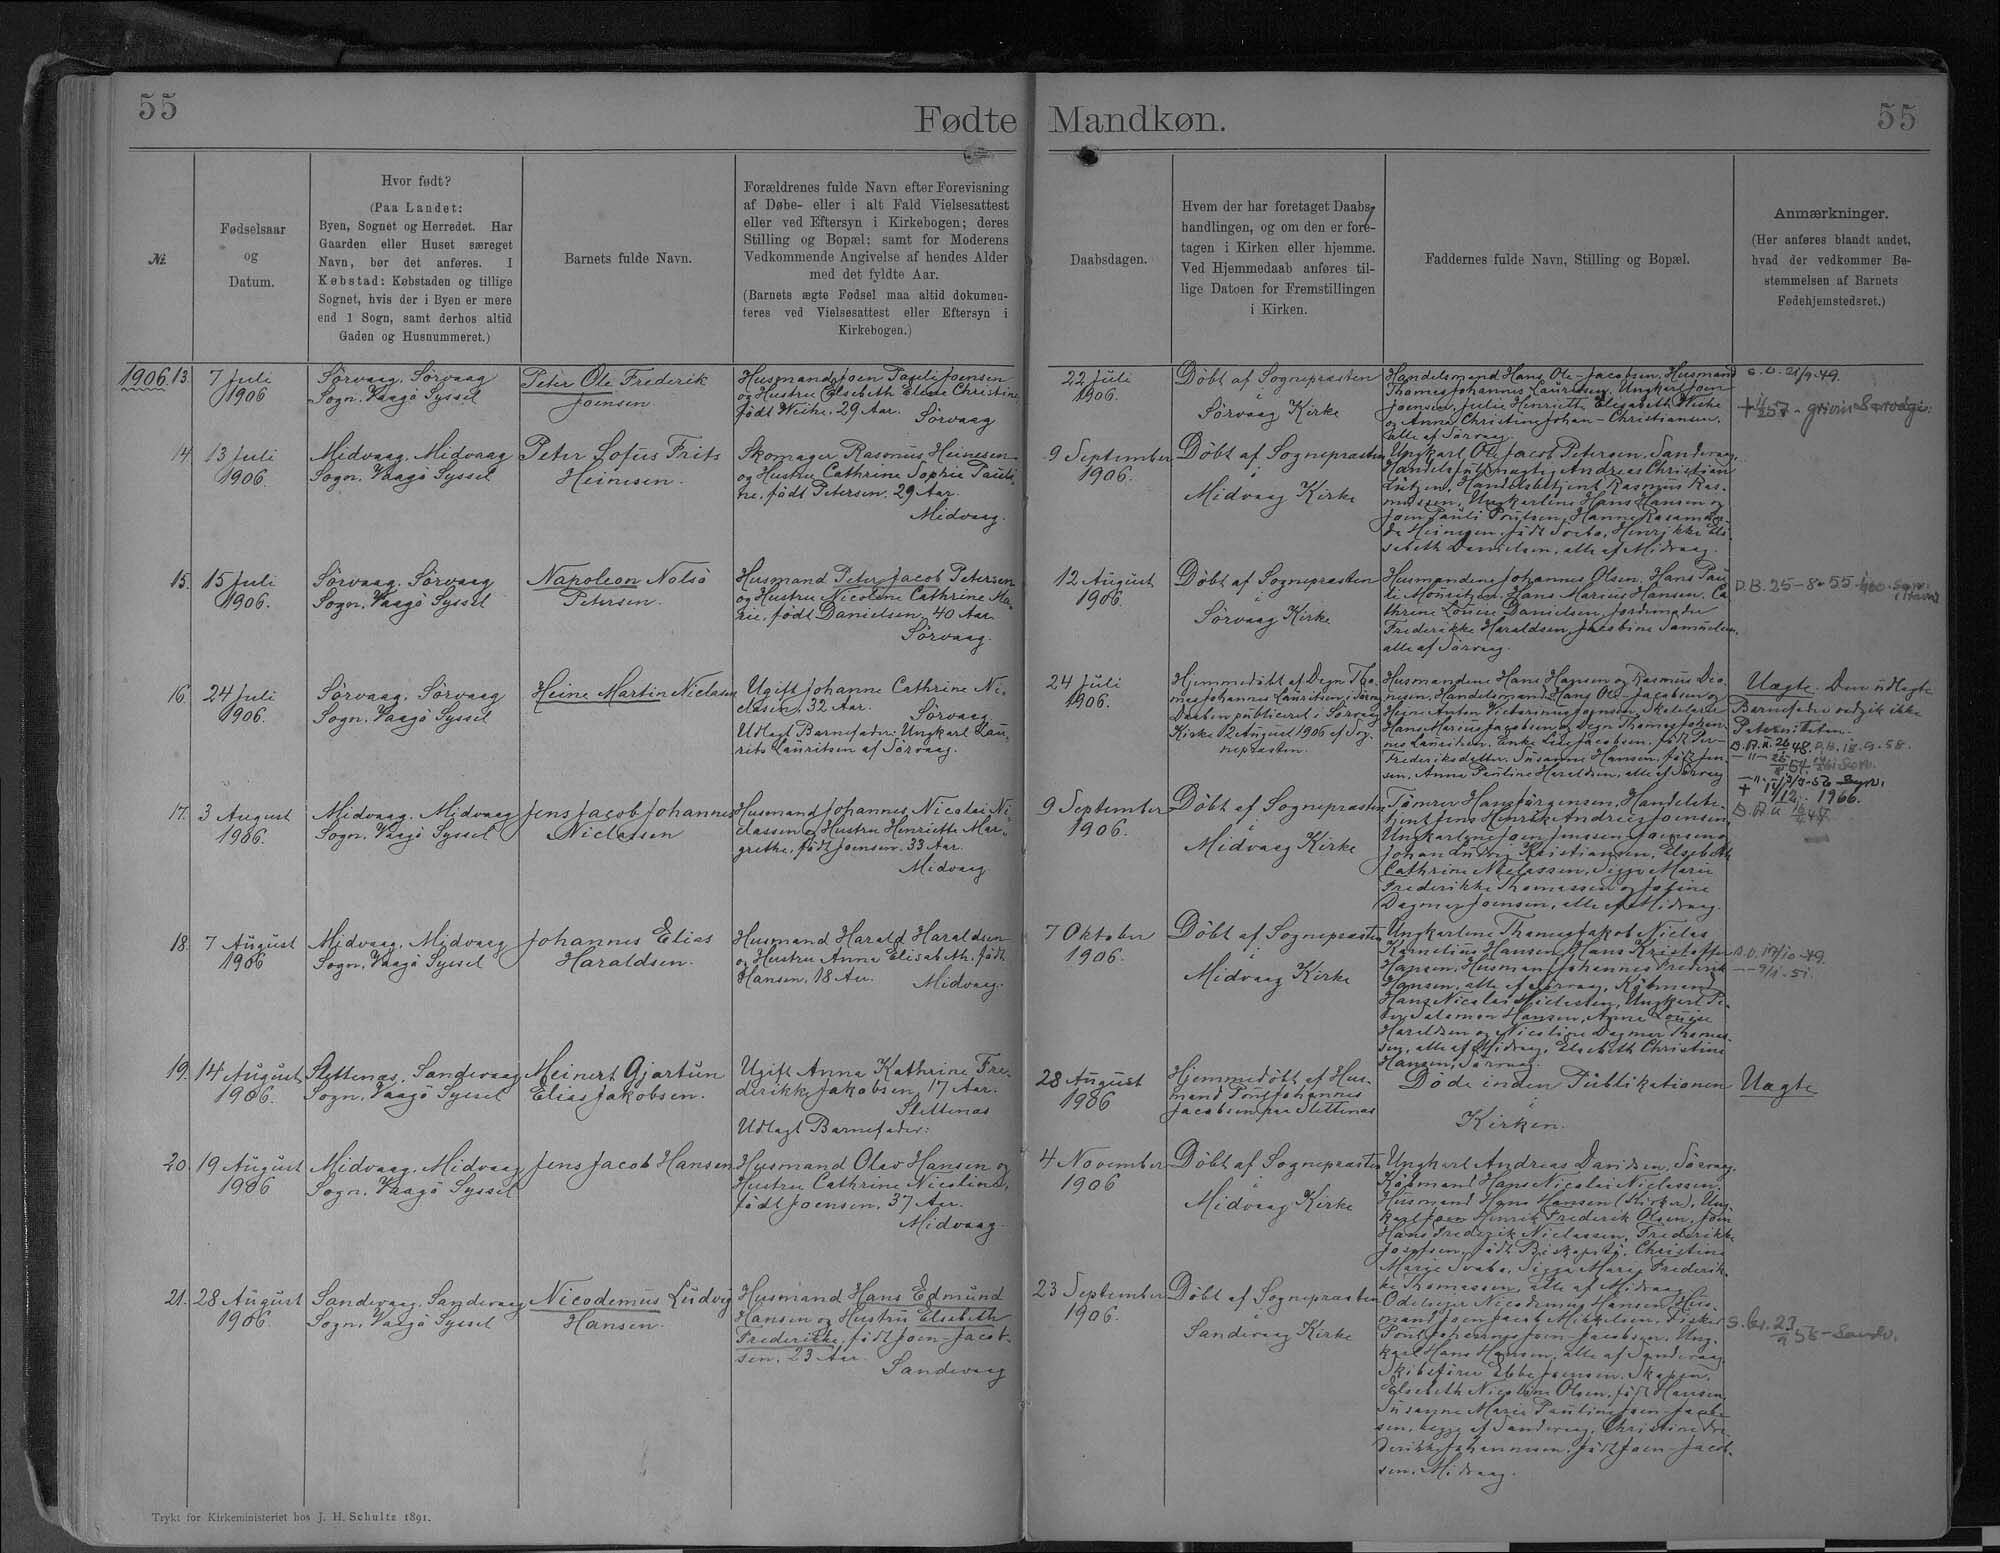 55
Fødte
Mandkøn.
55
№.
Fødselsaar
og
Datum.
Hvor født?
(Paa Landet:
Byen, Sognet og Herredet. Har
Gaarden eller Huset særeget
Navn, bør det anføres. I
Købstad: Købstaden og tillige
Sognet, hvis der i Byen er mere
end 1 Sogn, samt derhos altid
Gaden og Husnummeret.)
Barnets fulde Navn.
Forældrenes fulde Navn efter Forevisning
af Døbe- eller i alt Fald Vielsesattest
eller ved Eftersyn i Kirkebogen; deres
Stilling og Bopæl; samt for Moderens
Vedkommende Angivelse af hendes Alder
med det fyldte Aar.
(Barnets ægte Fødsel maa altid dokumen-
teres ved Vielsesattest eller Eftersyn i
Kirkebogen.)
Daabsdagen.
Hvem der har foretaget Daabs-
handlingen, og om den er fore-
tagen i Kirken eller hjemme.
Ved Hjemmedaab anføres til-
lige Datoen for Fremstillingen
i Kirken.
Faddernes fulde Navn, Stilling og Bopæl.
Anmærkninger.
(Her anføres blandt andet,
hvad der vedkommer Be-
stemmelsen af Barnets
Fødehjemstedsret.)
1906. 13.
7 Juli
1906
Sörvaag, Sörvaag
Sogn, Vaagö Syssel
Peter Ole Frederik
Joensen
Husmand Joen Pauli Joensen
og Hustru Elsebeth Elene Christine
født Weihe, 29 Aar.
Sörvaag
22 Juli
1906.
Döbt af Sognepræsten
i
Sörvaag Kirke
Handelsmand Hans Ole-Jacobsen, Husmand
Thomas Johannes Lauritsen, Ungkarl Joen
Joensen, Julie Henriette Elisabeth Weihe
og Anna Christine Johan-Christiansen,
alle af Sörvaag.
14.
13 Juli
1906.
Midvaag, Midvaag
Sogn, Vaagö Syssel
Peter Sofus Frits
Heinesen.
Skomager Rasmus Heinesen
og Hustru Cathrine Sophie Pauli-
ne, født Petersen, 29 Aar.
Midvaag.
9 September
1906.
Döbt af Sognepræsten
i
Midvaag Kirke
Ungkarl Ole Jacob Petersen, Sandevaag,
Handelsfuldmægtig Andreas Christian
Lützen, Handelsbetjent Rasmus Ras-
mussen, Ungkarlene Hans Hansen og
Joen Pauli Poulsen, Hanne Rasamun-
de Heinesen, født Svabo, Henrikke Eli-
sebeth Danielsen, alle af Midvaag.
15.
15 Juli
1906.
Sörvaag, Sörvaag
Sogn, Vaagö Syssel
Napoleon Nolsö
Petersen.
Husmand Peter Jacob Petersen
og Hustru Nicoline Cathrine Ma-
rie, født Danielsen, 40 Aar.
Sörvaag.
12 August
1906.
Döbt af Sognepræsten
i
Sörvaag Kirke
Husmændene Johannes Olsen, Hans Pau-
li Mouritzen, Hans Marius Hansen, Ca-
thrine Louise Danielsen, Jordemoder
Frederikke Haraldsen, Jacobine Samuelsen,
alle af Sörvaag.
D.B. 25-8-55
16.
24 Juli
1906.
Sörvaag, Sörvaag
Sogn, Vaagö Syssel
Heine Martin Niclasen
Ugift Johanne Cathrine Ni-
clasen, 32 Aar.
Sörvaag
Udlagt Barnefader: Ungkarl Lau-
rits Lauritsen af Sörvaag.
24 Juli
1906.
Hjemmedöbt af Degn Tho-
mas Johannes Lauritsen i Sörvaag
Daaben publiceret i Sörvaag
Kirke 12 August 1906 af Sog-
nepræsten.
Husmændene Hans Hansen og Rasmus Dio-
nesen, Handelsmand Hans Ole-Jacobsen og
Hans Marius Jacobsen og Degn Thomas Johan-
nes Lauritsen, Enke Lise Jacobsen, født Per-
Frederiksdatter, Susanne Hansen, født Jen-
sen, Anna Pauline Haraldsen, alle af Sörvaag
Uægte. Den udlagte
Barnefader vedgik ikke
Paterniteten.
1966.
17.
3 August
1906.
Midvaag, Midvaag
Sogn, Vaagö Syssel
Jens Jacob Johannes
Niclassen
Husmand Johannes Nicolai Ni-
classen og Hustru Henriette Mar-
grethe, født Joensen, 33 Aar.
Midvaag
9 September
1906.
Döbt af Sognepræsten
i
Midvaag Kirke
Tömrer Hans Jürgensen, Handelsbe-
tjent Jens Henrik Andreas Joensen,
Johan Ludvig Kristiansen, Elsebeth
Cathrine Niclassen, Sigga Marie
Frederikke Thomassen og Josine
Dagmar Joensen, alle af Midvaag.
18.
7 August
1906
Midvaag, Midvaag
Sogn, Vaagö Syssel
Johannes Elias
Haraldsen.
Husmand Harald Haraldsen
og Hustru Anna Elisabeth, født
Hansen, 18 Aar.
Midvaag.
7 Oktober
1906.
Döbt af Sognepræsten
i
Midvaag Kirke
Ungkarlene Thomas Jakob Niclas
Kornelius Hansen, Hans Kristoffer
Hansen, Husmand Johannes Frederik
Hansen, alle af Sörvaag, Købmand
Hans Nicolai Niclassen, Ungkarl Pe-
ter Salomon Hansen, Anne Louise
Haraldsen og Nicoline Dagmar Thomas-
sen, alle af Midvaag, Elsebeth Christine
Hansen, Sörvaag.
19.
14 August
1906.
Slettenæs, Sandevaag
Sogn, Vaagö Syssel
Meinert Gjartun
Elias Jakobsen.
Ugift Anna Kathrine Fre-
derikke Jakobsen, 17 Aar.
Slettenæs
Udlagt Barnefader:
28 August
1906
Hjemmedöbt af Hus-
mand Poul Johannes
Jacobsen paa Slettenæs
Døde inden Publikationen
i
Kirken.
Uægte
20.
19 August
1906
Midvaag, Midvaag
Sogn, Vaagö Syssel
Jens Jacob Hansen
Husmand Olav Hansen og
Hustru Cathrine Nicoline,
født Joensen, 37 Aar.
Midvaag.
4 November
1906
Döbt af Sognepræsten
i
Midvaag Kirke
Ungkarl Andreas Davidsen, Sörvaag,
Købmand Hans Nicolai Niclassen,
Husmand Hans Hansen (Kirker), Ung-
karl Joen Henrik Frederik Olsen, Joen
Hans Frederik Niclassen, Frederikke
Josefsen, født Biskopstö, Christine
Marie Svabo, Sigga Marie Frederik-
ke Thomassen, alle af Midvaag
21.
28 August
1906.
Sandevaag, Sandevaag
Sogn, Vaagö Syssel
Nicodemus Ludvig
Hansen.
Husmand Hans Edmund
Hansen og Hustru Elsebeth
Frederikke, født Joen-Jacob-
sen, 23 Aar.
Sandevaag
23 September
1906.
Döbt af Sognepræsten
i
Sandevaag Kirke
Odelsejer Nicodemus Hansen, Hus-
mand Joen Jacob Mikkelsen, Fisker
Poul Johannes Joen-Jacobsen, Ung-
karl Hans Hansen, alle af Sandevaag,
Skibsfører Ebbe Joensen, Skopen,
Elsebeth Nicoline Olsen, født Hansen,
Susanne Marie Pauline Joen-Jacob-
sen, begge af Sandevaag, Christine Fre-
derikke Johannesen, født Joen-Jacob-
sen, Midvaag.
Trykt for Kirkeministeriet hos J. H. Schultz 1891.